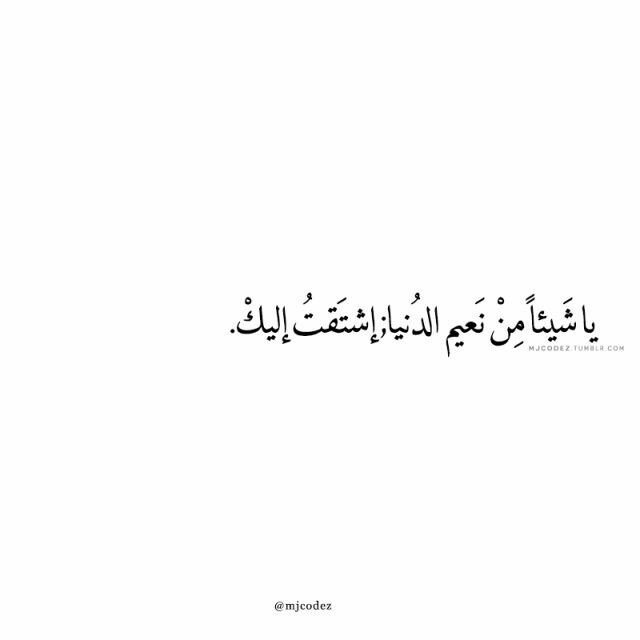 يا شَيئاً مِنْ نَعيم الدُنيا; إشتَقتُ إليكْ.
MJCODEZ.TUMBLR.COM
@mjcodez